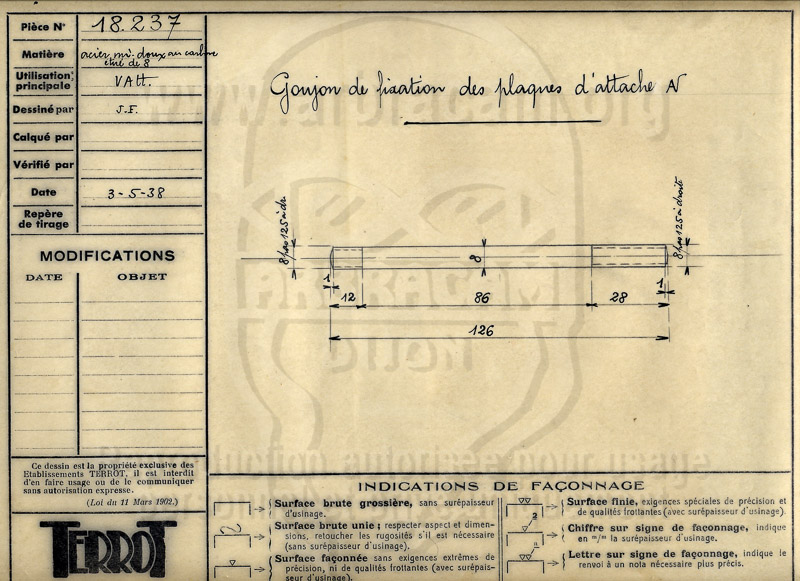 Pièce N° 18.237
Matière acier mi-doux au carbone
étiré de 8
Utilisation principale VAtt.
Dessiné par J.F.
Calqué par
Vérifié par
Date 3-5-38
Repère de tirage
MODIFICATIONS
DATE OBJET
Goujon de fixation des plaques d'attache AV
8 pas 125 à dr.
8
8 pas 125 à droite
1
1
12
86
28
126
Ce dessin est la propriété exclusive des
Etablissements TERROT, il est interdit
d'en faire usage ou de le communiquer
sans autorisation expresse.
(Loi du 11 Mars 1902.)
TERROT
INDICATIONS DE FAÇONNAGE
Surface brute grossière, sans surépaisseur
d'usinage.
Surface brute unie; respecter aspect et dimen-
sions, retoucher les rugosités s'il est nécessaire
(sans surépaisseur d'usinage).
Surface façonnée sans exigences extrêmes de
précision, ni de qualités frottantes (avec surépais-
seur d'usinage).
Surface finie, exigences spéciales de précision et
de qualités frottantes (avec surépaisseur d'usinage).
2
Chiffre sur signe de façonnage, indique
en m/m la surépaisseur d'usinage.
Lettre sur signe de façonnage, indique le
renvoi à un nota nécessaire plus précis.
www.arbracam.org
DIJON
Reproduction autorisée pour usage